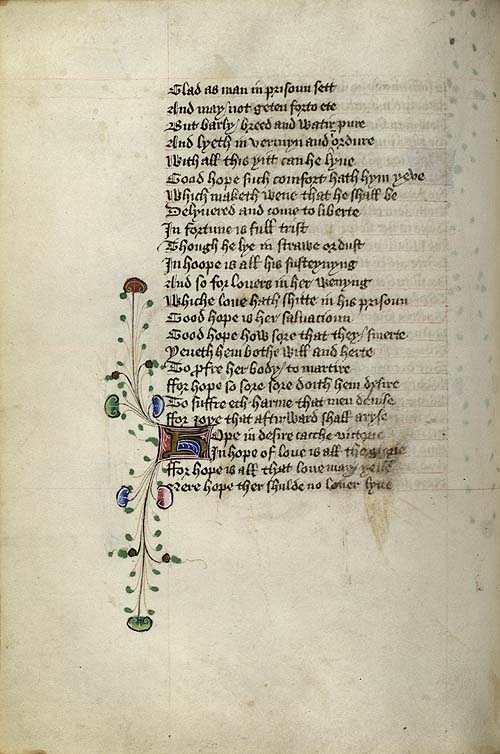 Glad as man in prisoun sett
And may not geten forto ete
But barly breed and watir pure
And lyeth in vermyn and ordure
With all this yitt can he lyve
Good hope such comfort hath hym yeve
Which maketh wene that he shall be
Delyvered and come to liberte
In fortune is full trist
Though he lye in strawe or dust
In hoope is all his susteynyng
And so for lovers in her wenyng
Whiche love hath shitte in his prisoun
Good hope is her salvacioun
Good hope how sore that they smerte
Yeveth hem bothe will and herte
To profre her body to martire
ffor hope so sore doith hem desire
To suffre ech harme that men devise
ffor joye that aftirward shall aryse
Hope in desire cacche victorie
In hope of love is all the glorie
ffor hope is all that love may yeve
Nere hope ther shulde no lover lyve